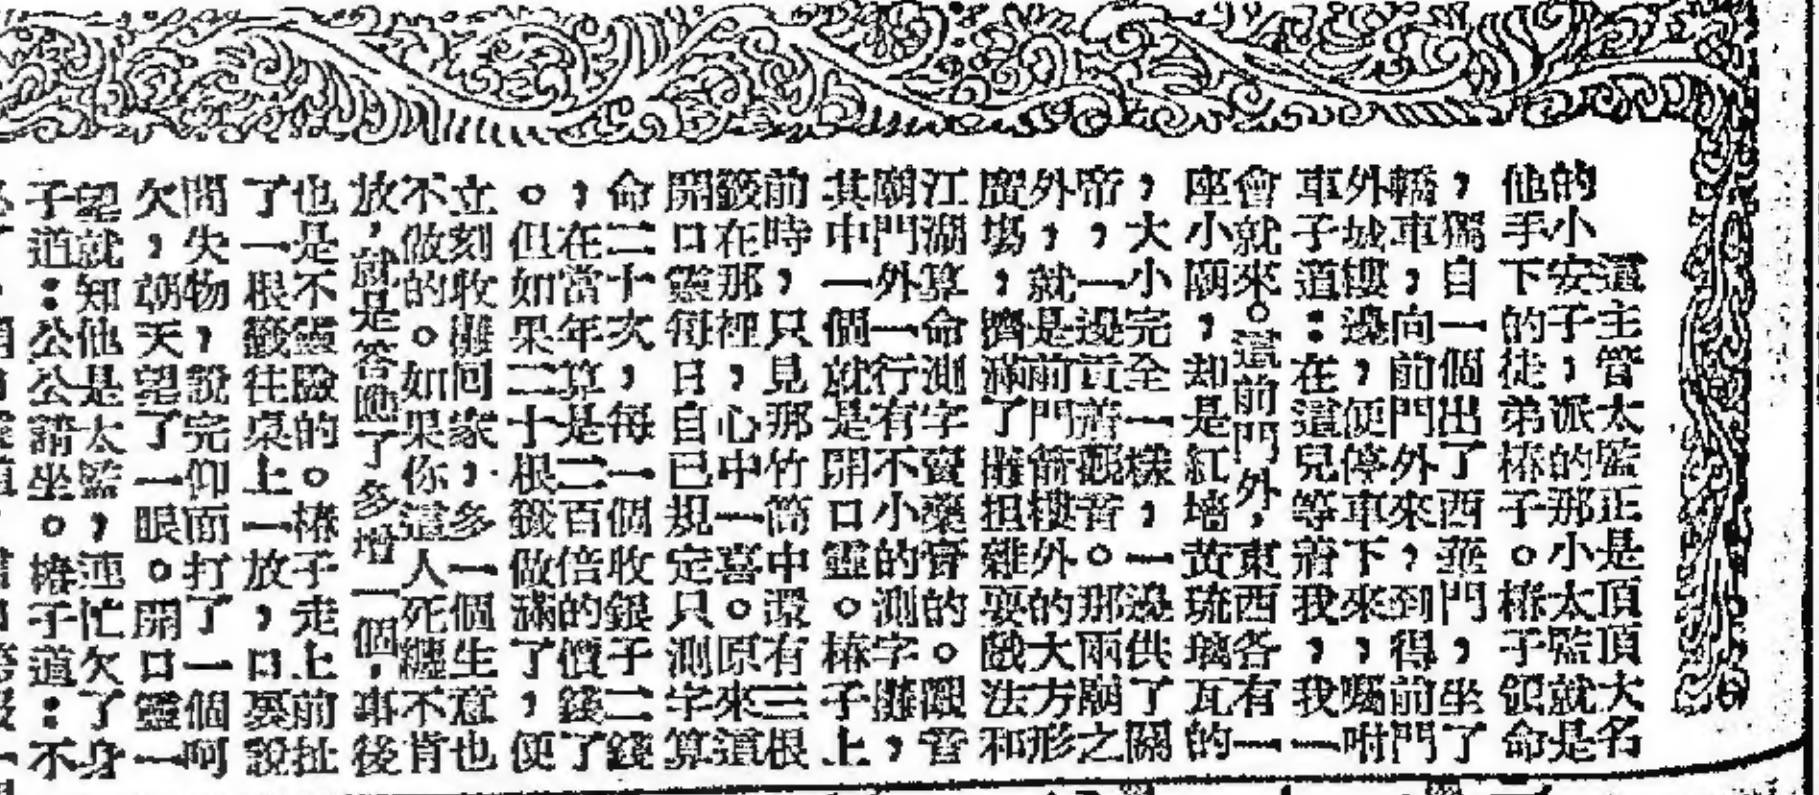 這主管太監正是頂頂大名
的小安子，派的那小太監就是
他手下的徒弟椿子。椿子領命
，獨自一個出了西華門，坐了
轎車，向前門外來，到得前門
外城樓邊，便停車下來，囑咐
車子道：在這兒等着我，我一
會就來。這前門外，東西各有一
座小廟，却是紅墻黃琉璃瓦的
，大小完全一樣，一邊供了關
帝，一邊貢着觀音。那兩廟之
外，就是前門箭樓外的大方形
廣場，擠滿了攤担雜耍戲法和
江湖算命測字賣藥膏的。觀音
廟門外一行有不小的測字攤，
其中一個就是開口靈。椿子上
前時，只見那竹筒中還有三根
籤在那裡，心中一喜。原來這
開口靈每日自己規定只測字算
命二十次，每一個收銀子二錢
，在當年算是二百倍的價錢了
。但如果二十根籤做滿了，便
立刻收攤回家，多一個生意也
不做的。如果你這人死纏不肯
放，就是答應了多增一個，事後
也是不靈驗的。椿子走上前扯
了一根籤往桌上一放，口裏說
問失物，說完仰面打了一個呵
欠，朝天望了一眼。開口靈一
望就知他是太監，連忙欠了身
子道：公公請坐。椿子道：不